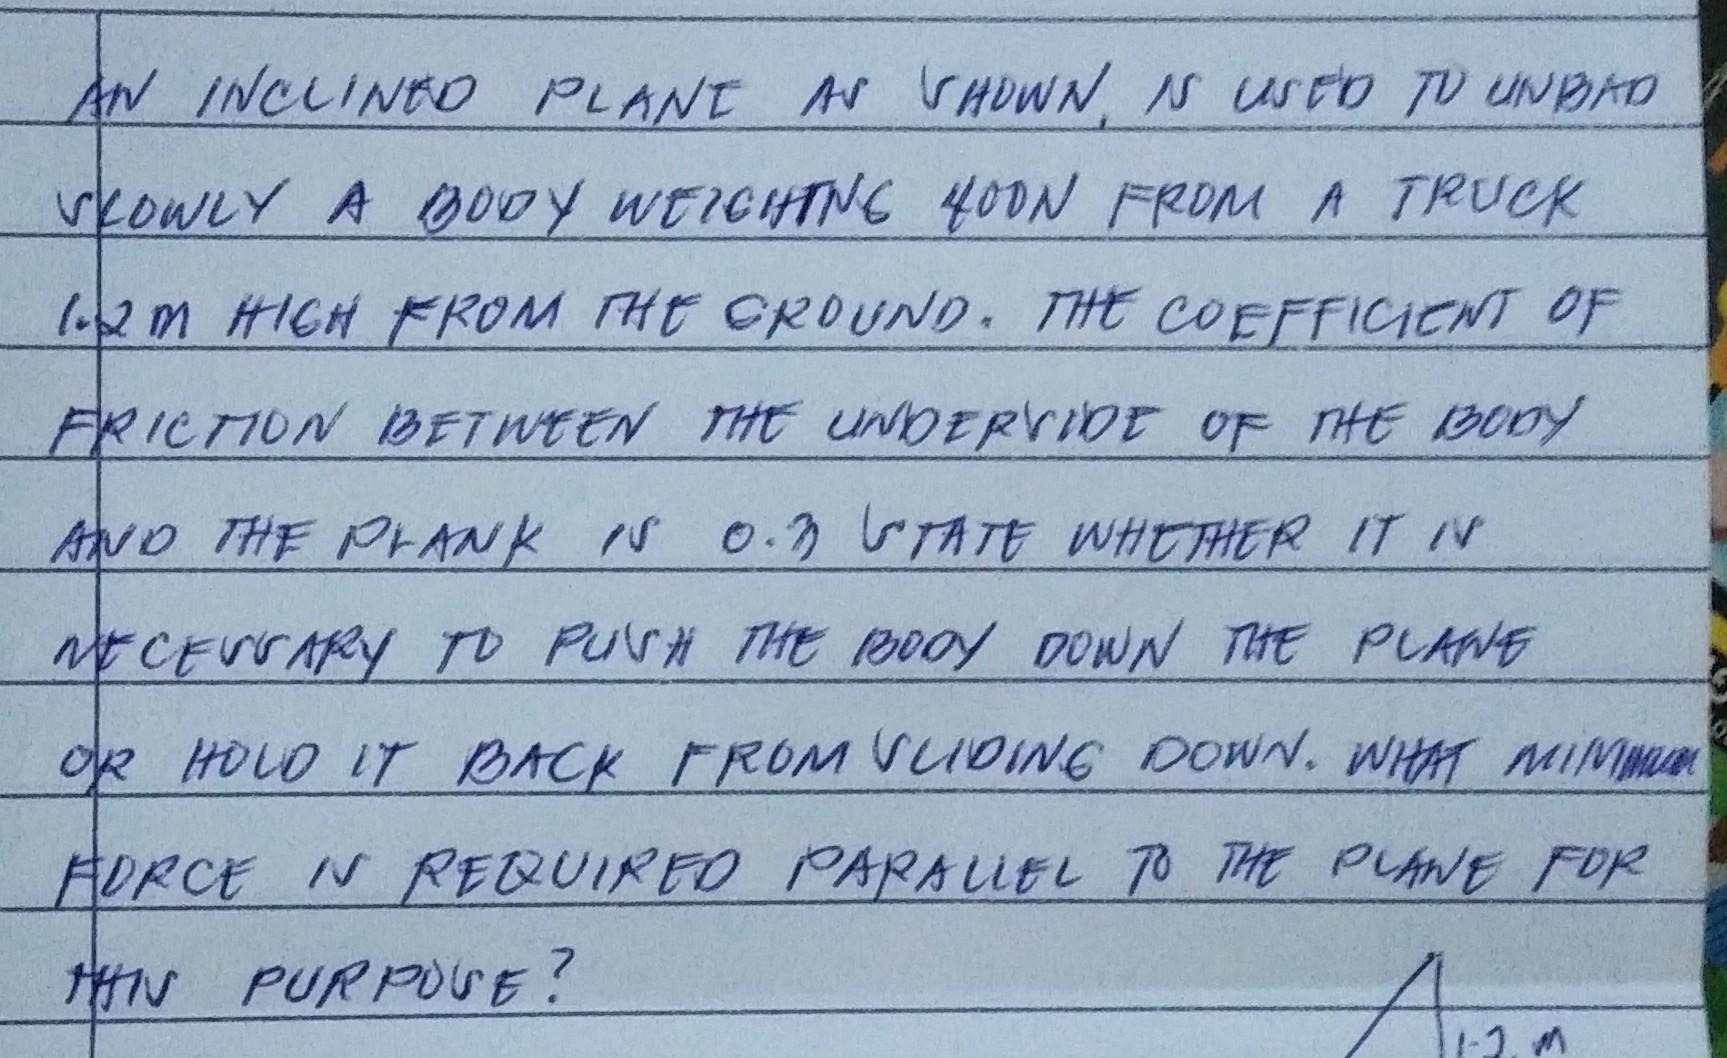 AN INCLINED PLANE AS SHOWN, IS USED TO UNLOAD
SLOWLY A BODY WEIGHTING 400N FROM A TRUCK
1.2 m HIGH FROM THE GROUND. THE COEFFICIENT OF
FRICTION BETWEEN THE UNDERSIDE OF THE BODY
AND THE PLANK IS 0.3 STATE WHETHER IT IS
NECESSARY TO PUSH THE BODY DOWN THE PLANE
OR HOLD IT BACK FROM SLIDING DOWN. WHAT MINIMUM
FORCE IS REQUIRED PARALLEL TO THE PLANE FOR
THIS PURPOSE?
1.2 m